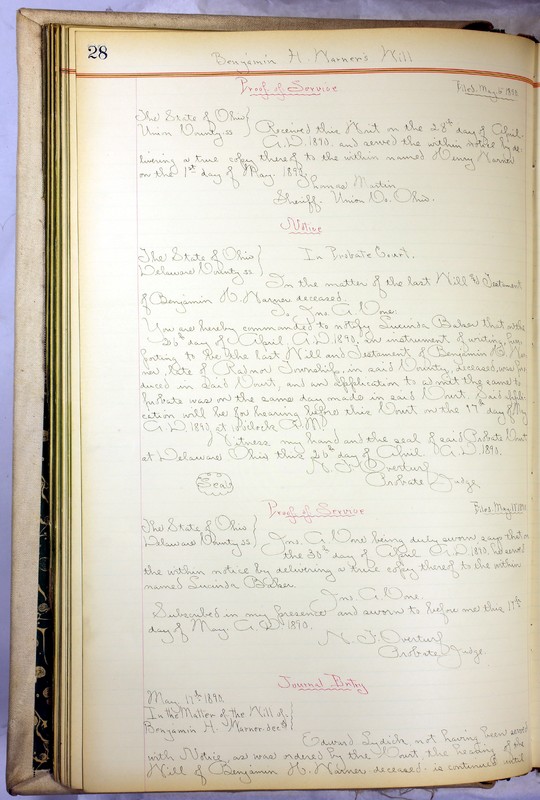 28
Benjamin H. Warner's Will
Proof of Service Filed May 5" 1890
The State of Ohio }
Union County ss } Received this Writ on the 28th day of April
A.D. 1890, and served the within notice by de-
livering a true copy thereof to the within named Henry Warner
on the 1st day of May. 1890
Thomas Martin
Sheriff Union Co. Ohio.
Notice
The State of Ohio }
Delaware County ss } In Probate Court.
In the matter of the last Will & Testament
of Benjamin H. Warner deceased.
To Jno. A. Cone:
You are hereby commanded to notify Lucinda Baker that on the
26th day of April A.D. 1890, an instrument of writing, pur-
porting to be the last Will and Testament of Benjamin H. War-
ner, late of Radnor Township, in said County, deceased, was pro-
duced in said Court, and an application to admit the same to
probate was on the same day made in said Court. Said appli-
cation will be for hearing before this Court on the 17th day of May
A.D. 1890, at o'clock A.M.
Witness my hand and the seal of said Probate Court
at Delaware Ohio this 26th day of April A.D. 1890.
N. F. Overturf
Probate Judge
Seal
Proof of Service Filed May 17" 1890
The State of Ohio }
Delaware County ss } Jno. A. Cone being duly sworn says that on
the 30th day of April A.D. 1890, he served
the within notice by delivering a true copy thereof to the within
named Lucinda Baker.
Jno. A. Cone.
Subscribed in my presence and sworn to before me this 17th
day of May A.D. 1890.
N. F. Overturf
Probate Judge.
Journal Entry
May 17th 1890.
In the Matter of the Will of }
Benjamin H. Warner dec'd }
Edward Lydick not having been served
with Notice, as was ordered by the Court, the hearing of the
Will of Benjamin H. Warner deceased is continued until